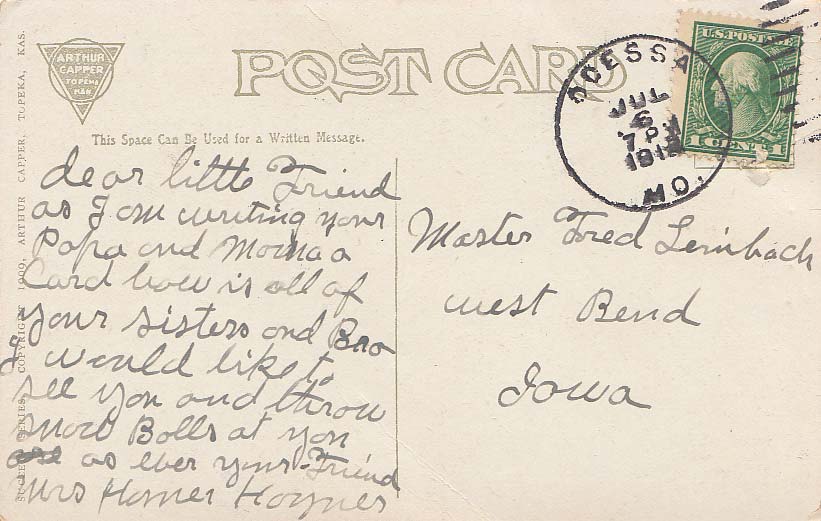 ARTHUR
CAPPER
TOPEKA
KAN.
POST CARD
This Space Can Be Used for a Written Message.
ODESSA
JUL
6
7 P
MO.
U.S. POSTAGE
1 CENT 1
SERIES, COPYRIGHT 1909, ARTHUR CAPPER, TOPEKA, KAS.
dear little Friend
as I am writing your
Papa and Mama a
Card how is all of
your sisters and Bro
I would like to
see you and throw
snow Bolls at you
as ever your Friend
Mrs Homer Haynes
Master Fred Leinbach
West Bend
Iowa